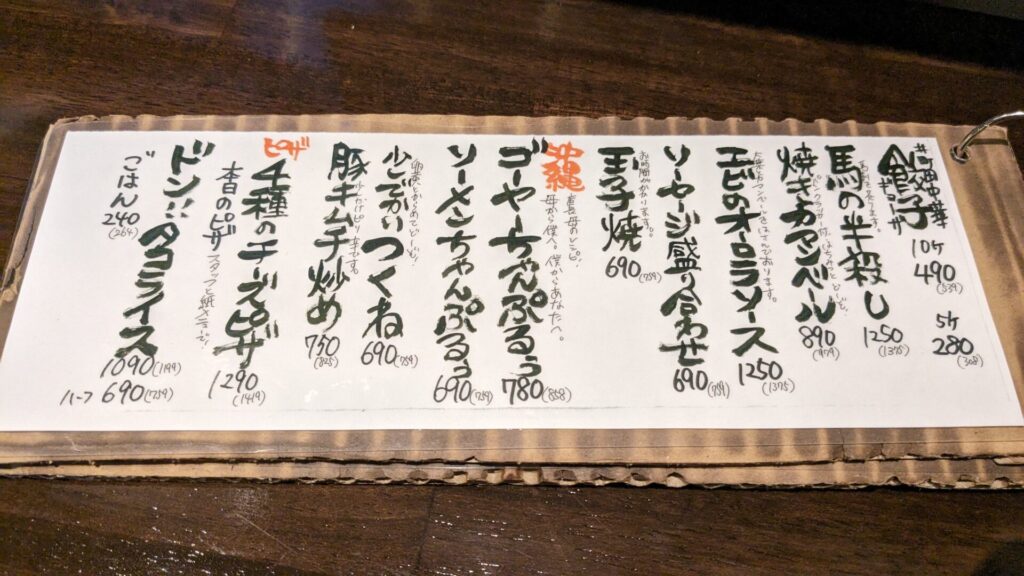 餃子
10ケ
490
(539)
5ケ
280
(308)
馬の半殺し
1250
(1375)
焼きカマンベール
890
(979)
エビのオーロラソース
1250
(1375)
ソーセージ盛り合わせ
690
(759)
お時間かかります。
玉子焼
690
(759)
沖縄
母から僕へ。僕からあなたへ。
ゴーヤーちゃんぷるぅ
780
(858)
ソーメンちゃんぷるぅ
690
(759)
少しでかいつくね
690
(759)
豚キムチ炒め
750
(825)
ピザ
4種のチーズピザ
1290
(1419)
本日のピザ
ドン!!タコライス
1090
(1199)
ハーフ
690
(759)
ごはん
240
(264)